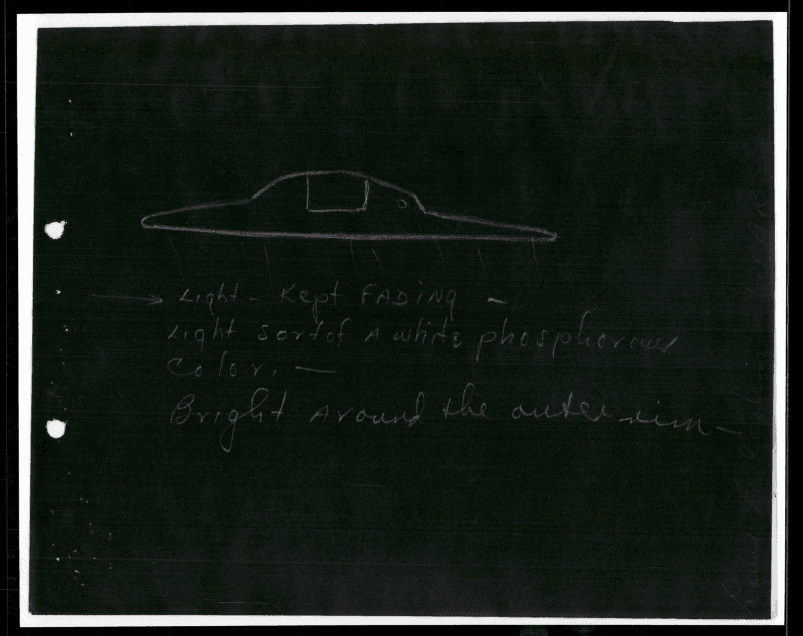 Light - Kept FADiNg -
Light sort of A white phosphorous
Color. —
Bright Around the outer rim -